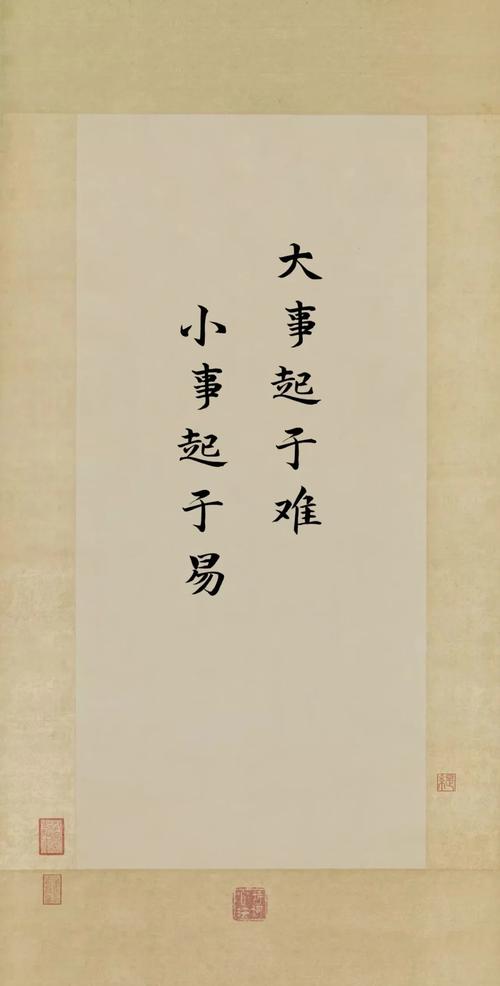 大事起于难
小事起于易